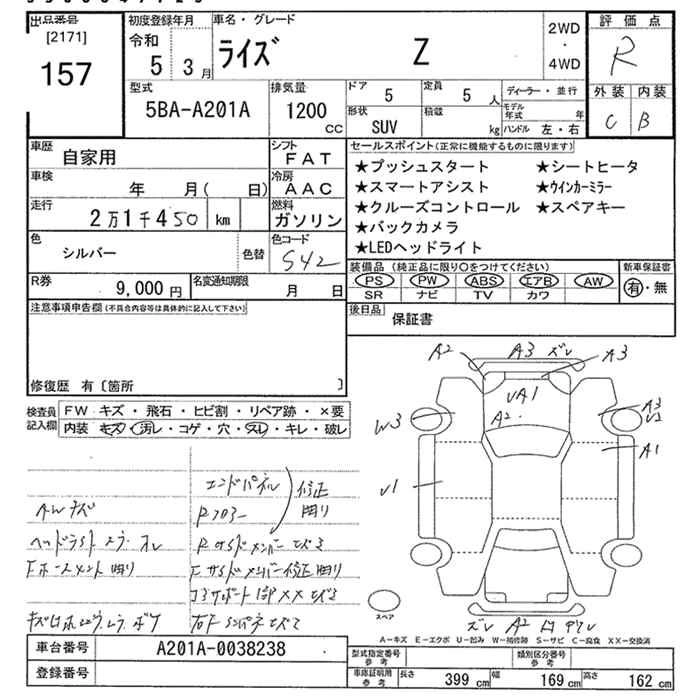 出品番号
[2171]
157
初度登録年月
令和
5 3月
車名・グレード
ライズ Z
2WD
・
4WD
評価点
R
外装 内装
C B
型式
5BA-A201A
排気量
1200
CC
ドア
5
定員
5 人
形状
SUV
積載
kg
ディーラー・並行
モデル年式 年
ハンドル 左・右
車歴
自家用
シフト
FAT
車検
年 月( 日)
冷房
AAC
走行
2万1千450 km
燃料
ガソリン
色
シルバー
色替
色コード
S42
R券
9,000 円
名変通知期限
月 日
セールスポイント(正常に機能するものに限ります)
★プッシュスタート ★シートヒータ
★スマートアシスト ★ウインカーミラー
★クルーズコントロール ★スペアキー
★バックカメラ
★LEDヘッドライト
装備品 (純正品に限り○をつけてください)
PS PW ABS エアB AW
SR ナビ TV カワ
新車保証書
有・無
後日品
保証書
注意事項申告欄(不具合内容等は具体的に記入して下さい)
修復歴 有〔箇所 〕
検査員
記入欄
FW キズ・飛石・ヒビ割・リペア跡・×要
内装 キズ・汚レ・コゲ・穴・スレ・キレ・破レ
エンドパネル
修正
AWキズ
Rフロアー
曲り
A2 A3 ズレ A3
UA1
A2
W3
A3
U2
A1
U1
スペア
ズレ A2
A=キズ E=エクボ U=凹み W=補修跡 S=サビ C=腐食 XX=交換済
車台番号
A201A-0038238
登録番号
型式指定番号
参考
類別区分番号
参考
車庫証明用
参考
長さ 399 cm 幅 169 cm 高さ 162 cm